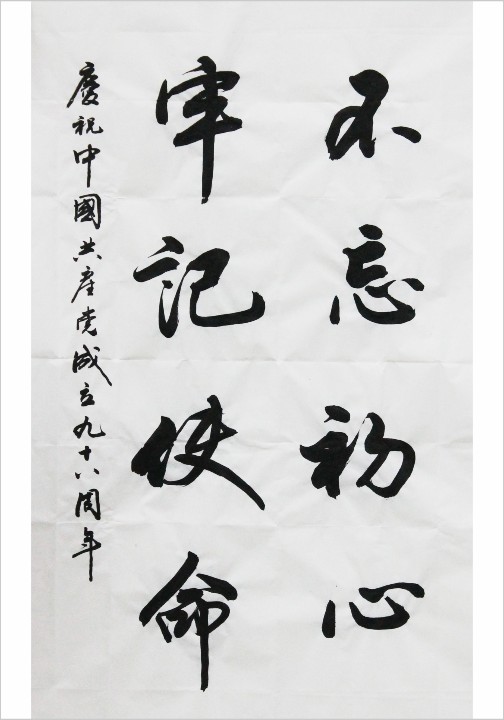 不忘初心
牢记使命
慶祝中國共產党成立九十八周年